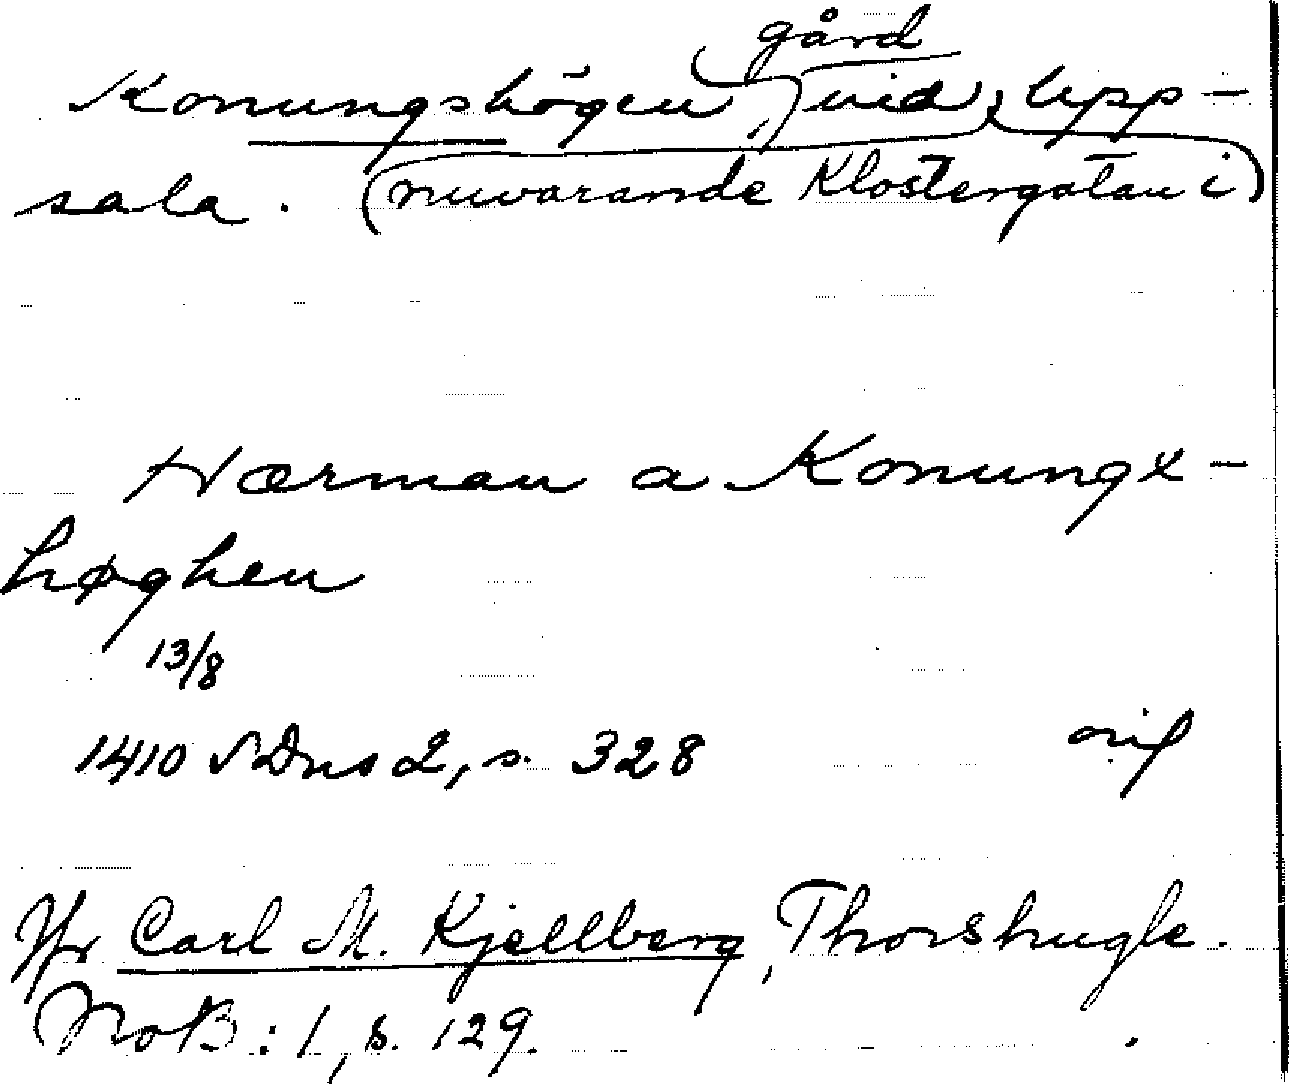 gård
Konungshögen, vid Upp-
sala. (nuvarande Klostergatan i)
Hærman a Konungx-
høghen
13/8
1410 SDns 2, s. 328
orig
Jfr Carl M. Kjellberg, Thorshugle.
NoB: 1, s. 129.